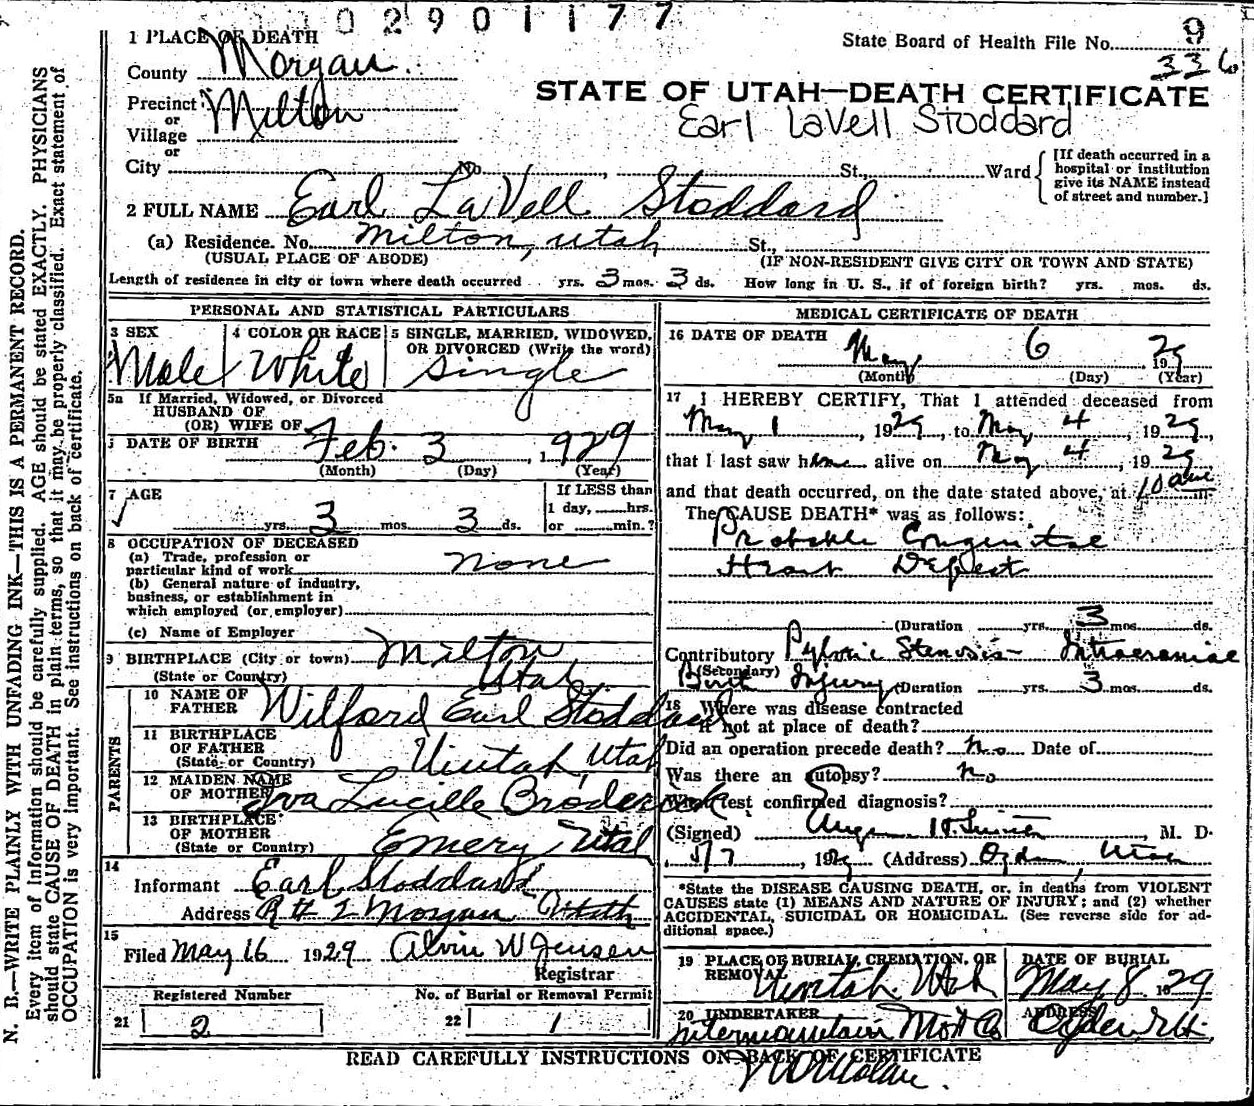 02901177
1 PLACE OF DEATH
State Board of Health File No. 9
336
County Morgan
STATE OF UTAH—DEATH CERTIFICATE
Precinct Milton
or
Village
Earl LaVell Stoddard
or
City No. , St., Ward
[If death occurred in a hospital or institution give its NAME instead of street and number.]
2 FULL NAME Earl LaVell Stoddard
(a) Residence. No. Milton, Utah St.,
(USUAL PLACE OF ABODE) (IF NON-RESIDENT GIVE CITY OR TOWN AND STATE)
Length of residence in city or town where death occurred yrs. 3 mos. 3 ds. How long in U. S., if of foreign birth? yrs. mos. ds.
PERSONAL AND STATISTICAL PARTICULARS
3 SEX 4 COLOR OR RACE 5 SINGLE, MARRIED, WIDOWED,
OR DIVORCED (Write the word)
Male White Single
5a If Married, Widowed, or Divorced
HUSBAND OF
(OR) WIFE OF
DATE OF BIRTH Feb. 3, 1929
(Month) (Day) (Year)
7 AGE
If LESS than
1 day, hrs.
yrs. 3 mos. 3 ds. or min.?
8 OCCUPATION OF DECEASED
(a) Trade, profession or
particular kind of work none
(b) General nature of industry,
business, or establishment in
which employed (or employer)
(c) Name of Employer
9 BIRTHPLACE (City or town) Milton
(State or Country) Utah
PARENTS
10 NAME OF
FATHER Wilford Earl Stoddard
11 BIRTHPLACE
OF FATHER
(State or Country) Uintah, Utah
12 MAIDEN NAME
OF MOTHER Iva Lucille Broderick
13 BIRTHPLACE
OF MOTHER
(State or Country) Emery Utah
14
Informant Earl Stoddard
Address Rt # 2 Morgan Utah
15
Filed May 16 1929 Alvin W Jensen
Registrar
Registered Number No. of Burial or Removal Permit
21 2 22 1
MEDICAL CERTIFICATE OF DEATH
16 DATE OF DEATH
May 6 1929
(Month) (Day) (Year)
17 I HEREBY CERTIFY, That I attended deceased from
May 1, 1929, to May 4, 1929,
that I last saw him alive on May 4, 1929
and that death occurred, on the date stated above, at 10 am m.
The CAUSE DEATH* was as follows:
Probable Congenital
Heart Defect
(Duration yrs. 3 mos. ds.
Contributory Pyloric Stenosis - Intracranial
(Secondary)
Birth Injury (Duration yrs. 3 mos. ds.
18 Where was disease contracted
if not at place of death?
Did an operation precede death? No Date of
Was there an autopsy? no
What test confirmed diagnosis?
(Signed) , M. D.
5/7, 1929 (Address) Ogden, Utah
*State the DISEASE CAUSING DEATH, or, in deaths from VIOLENT
CAUSES state (1) MEANS AND NATURE OF INJURY; and (2) whether
ACCIDENTAL, SUICIDAL OR HOMICIDAL. (See reverse side for ad-
ditional space.)
19 PLACE OF BURIAL, CREMATION, OR
REMOVAL Uintah, Utah
DATE OF BURIAL
May 8 1929
20 UNDERTAKER
Intermountain Mort Co
ADDRESS
Ogden Ut.
READ CAREFULLY INSTRUCTIONS ON BACK OF CERTIFICATE
N. B.—WRITE PLAINLY WITH UNFADING INK—THIS IS A PERMANENT RECORD.
Every item of information should be carefully supplied. AGE should be stated EXACTLY. PHYSICIANS
should state CAUSE OF DEATH in plain terms, so that it may be properly classified. Exact statement of
OCCUPATION is very important. See instructions on back of certificate.